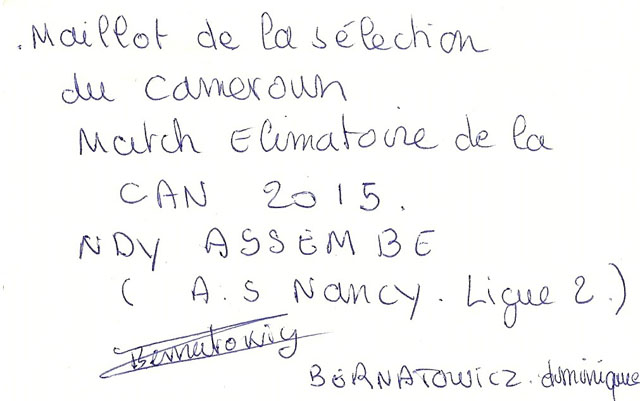 . Maillot de la sélection
du Cameroun
Match Elimatoire de la
CAN 2015.
NDY ASSEMBE
( A.S Nancy. Ligue 2.)
Bernatowicz
BERNATOWICZ. dominique